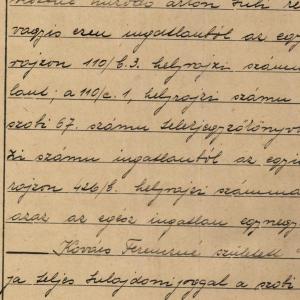 vagyis ezen ingatlanból az egy
rajzon 110/b.3. helyrajzi számu
laut; a 110/c.1, helyrajzi számu
szobi 67. számu telekjegyzőkönyv
ki számu ingatlanból az egyi
rajzon 426/b. helyrajzi számma
azaz az egész ingatlan egynegy
Kovács Ferencné született
ja teljes tulajdonjoggal a szobi